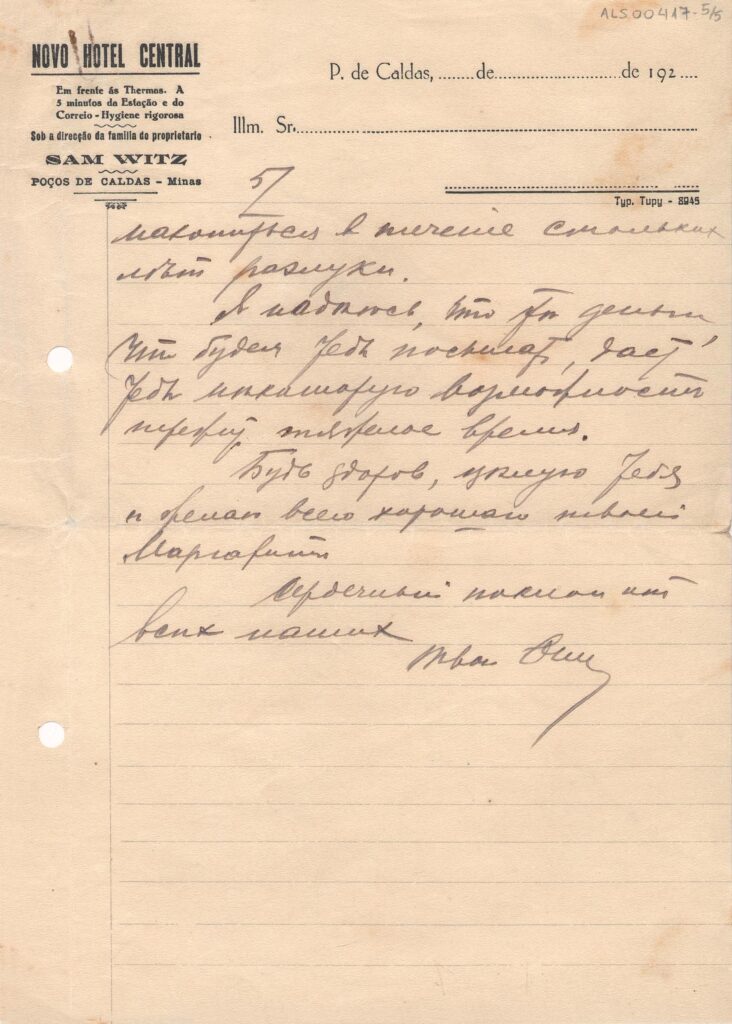 ALS00417-5/5
NOVO HOTEL CENTRAL
Em frente ás Thermas. A
5 minutos da Estação e do
Correio - Hygiene rigorosa
Sob a direcção da familia do proprietario
SAM WITZ
POÇOS DE CALDAS - Minas
P. de Caldas, ........de..............................de 192....
Illm. Sr.
Typ. Tupy - 8945
5/
накопиться в течение стольких
лѣт разлуки.
Я надѣюсь, что деньги
что будем Тебѣ посылать, даст
Тебѣ нѣкоторую возможность
тяжелое время.
Будь здоров, цѣлую Тебя
и желаю всего хорошаго твоей
Маргарите
Сердечный поклон от
всех наших
Твоя